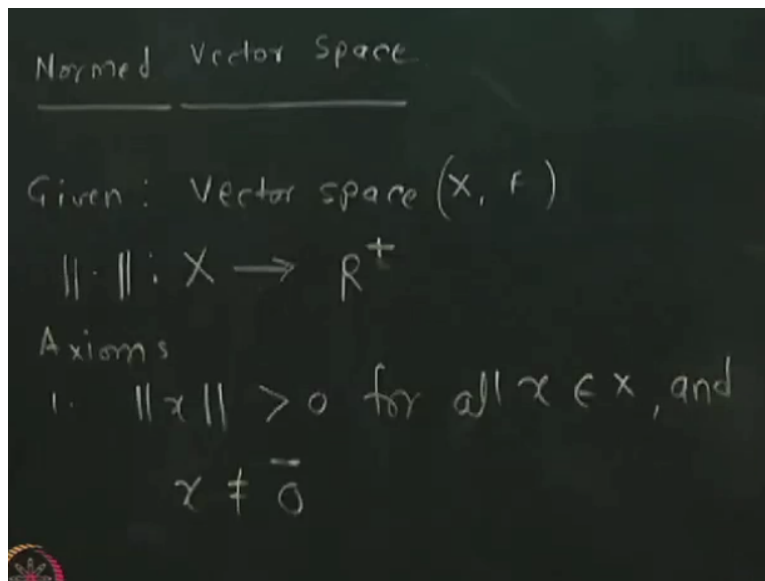 Normed Vector Space
Given: Vector space (X, F)
||·|| : X → R⁺
Axioms
1. ||x|| > 0 for all x ∈ X, and
x ≠ 0̄